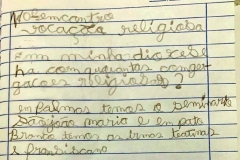 No encontro
vocação religiosa
Em minha diocese
ha com quantas congre-
gacoes religiosas?
en palmas temos o seminario
São joão maria e en pato
Branco temos as irmas teatinas
e fransiscano